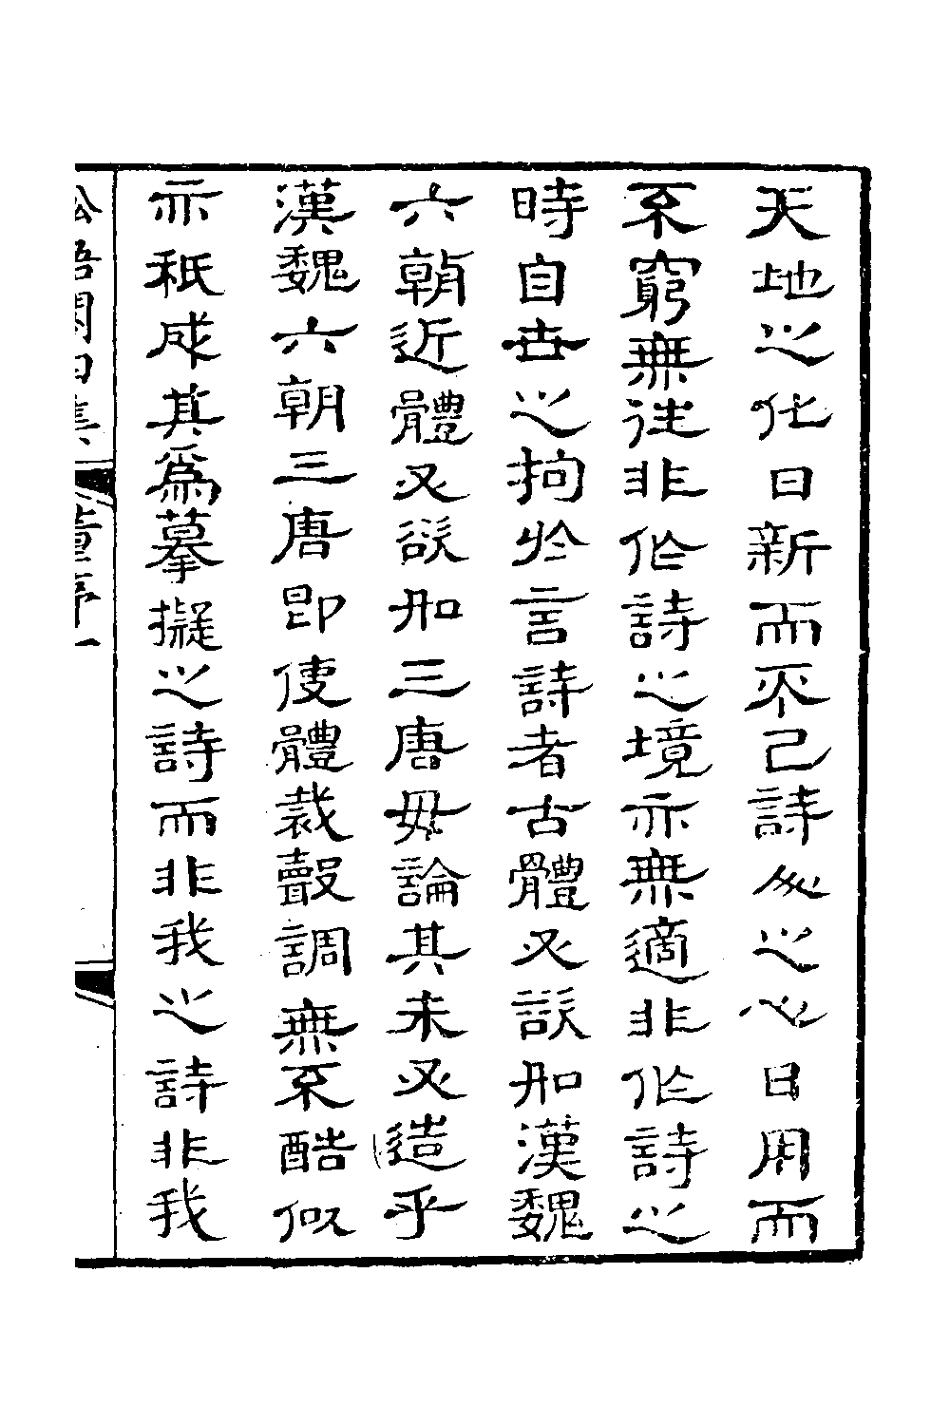 天地之化日新而不已詩人之心日用而
不窮無往非作詩之境亦無適非作詩之
時自世之拘於言詩者古體必談如漢魏
六朝近體必談如三唐毋論其未必造乎
漢魏六朝三唐即使體裁聲調無不酷似
亦秪成其爲摹擬之詩而非我之詩非我